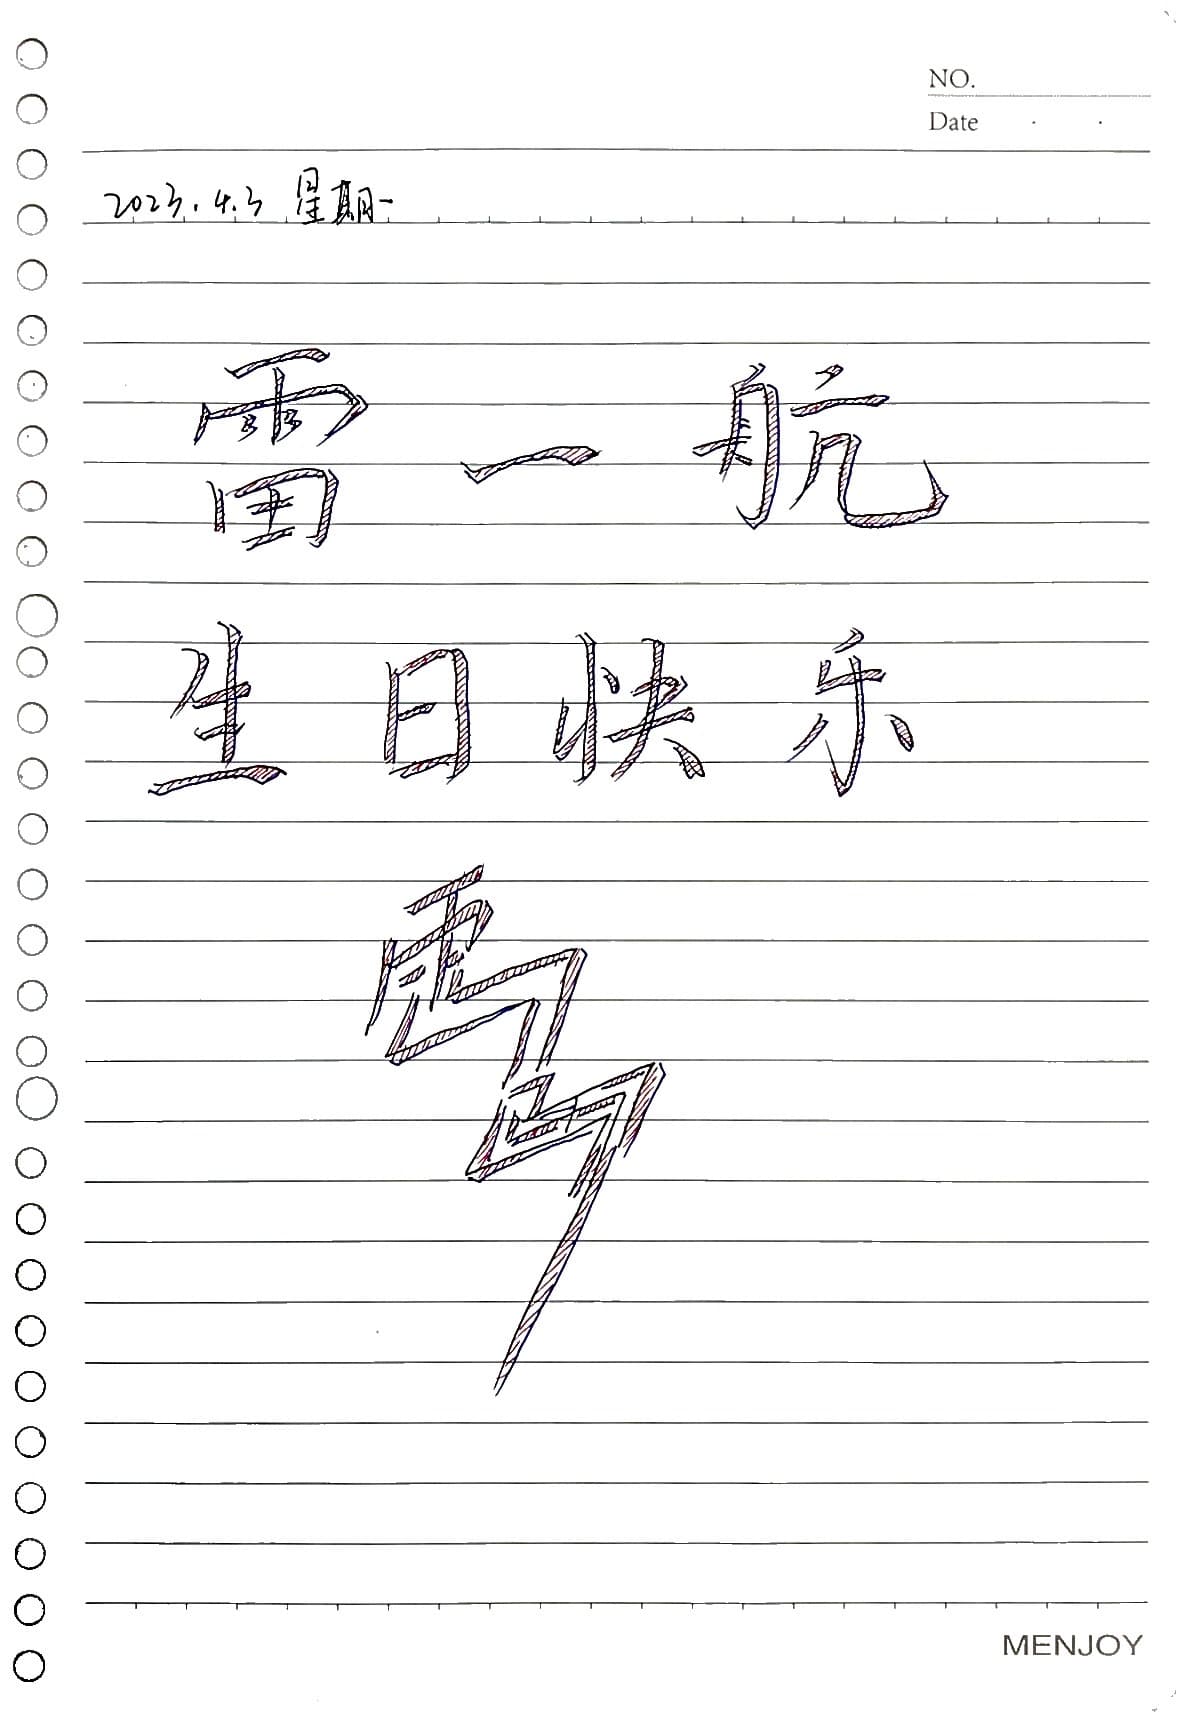 NO.
Date
2023.4.3 星期一
雷一航
生日快乐
雷
MENJOY